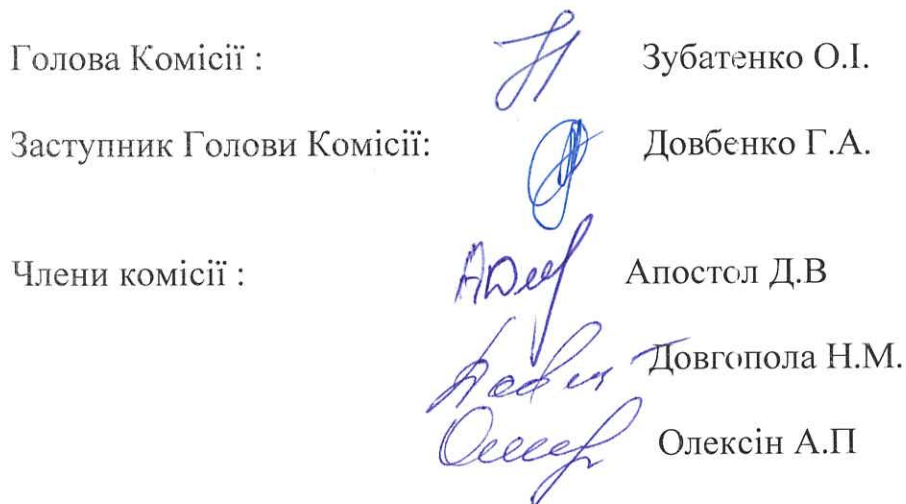 Голова Комісії : Зубатенко О.І.
Заступник Голови Комісії: Довбенко Г.А.
Члени комісії : Апостол Д.В
Довгопола Н.М.
Олексін А.П